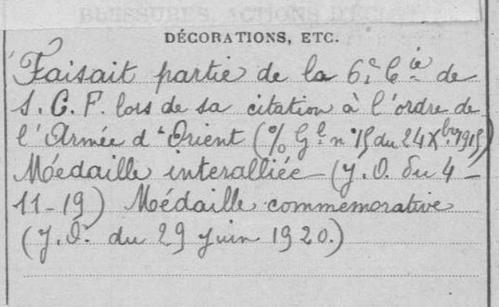 BLESSURES, ACTIONS D'ÉCLAT
DÉCORATIONS, ETC.
Faisait partie de la 6e Cie de
S.C.F. lors de sa citation à l'ordre de
l'Armée d'Orient (% Gl n° 15 du 24 Xbre 1915)
Médaille interalliée (J.O. du 4-
11-19) Médaille commemorative
(J.O. du 29 Juin 1920.)